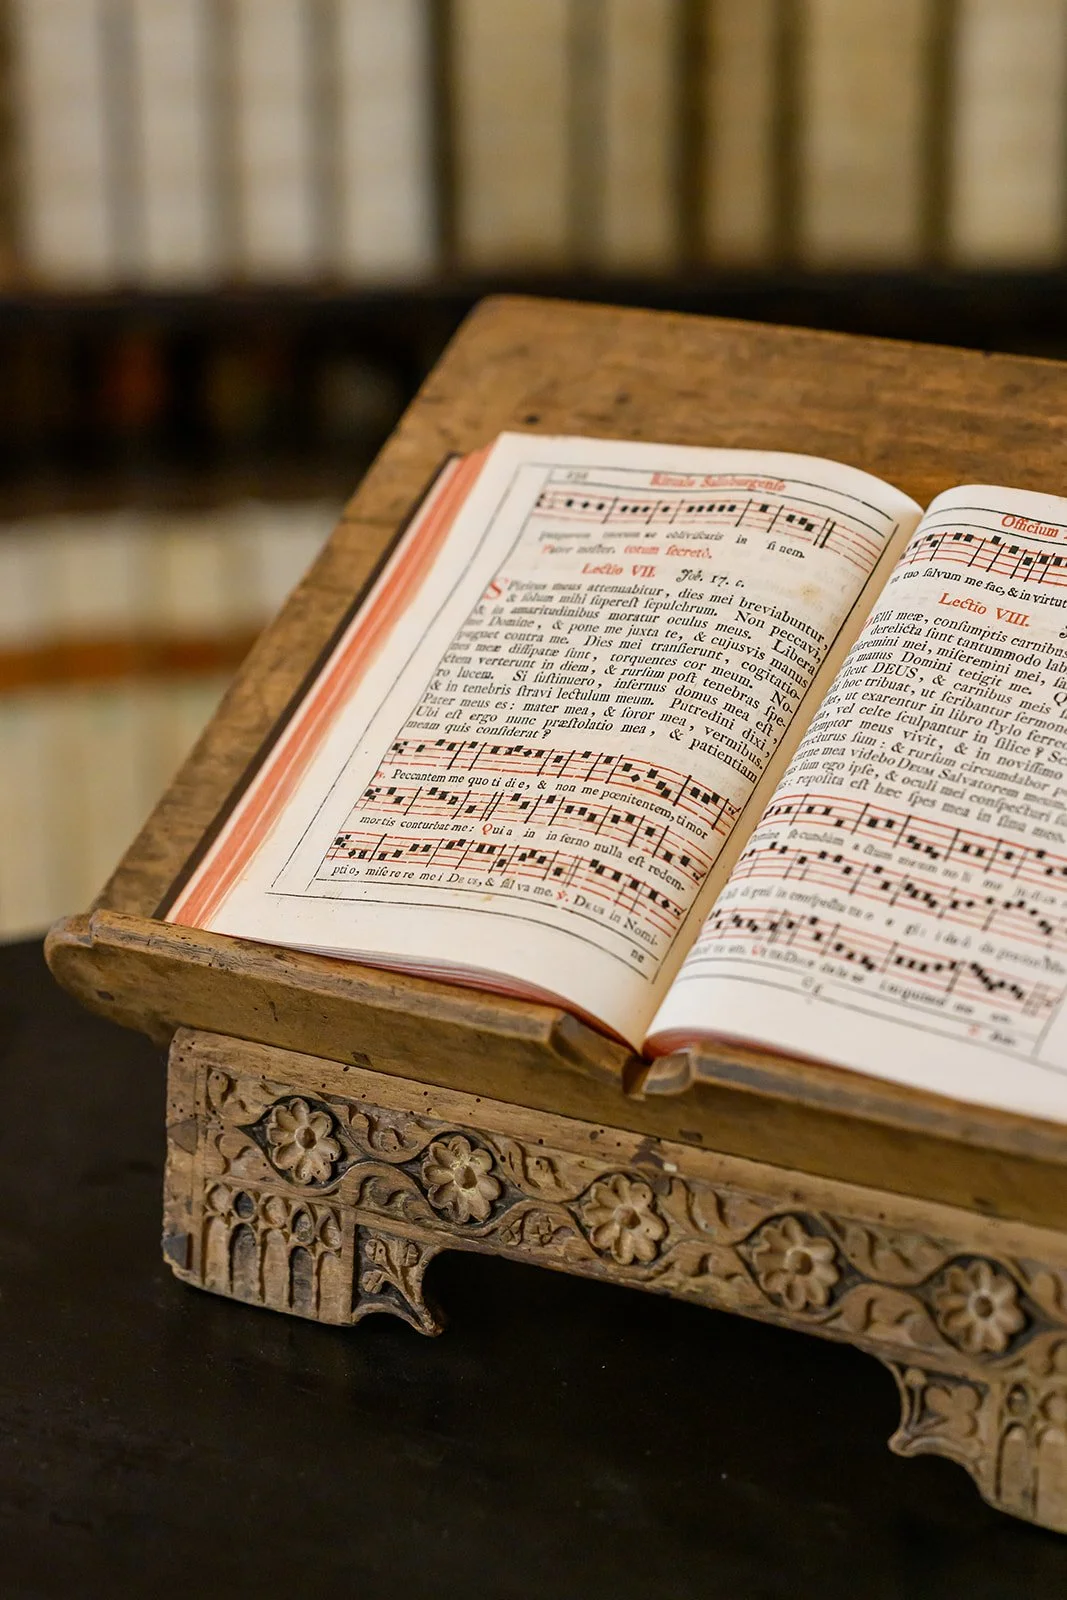 Rituale Salisburgense
obliviscaris in finem.
Pater noster. totum secretò.
Lectio VII. Job. 17. c.
SPiritus meus attenuabitur, dies mei breviabuntur,
& solum mihi superest sepulchrum. Non peccavi,
& in amaritudinibus moratur oculus meus. Libera
me Domine, & pone me juxta te, & cujusvis manus
pugnet contra me. Dies mei transierunt, cogitatio-
nes meæ dissipatæ sunt, torquentes cor meum. No-
ctem verterunt in diem, & rursum post tenebras spe-
ro lucem. Si sustinuero, infernus domus mea est,
& in tenebris stravi lectulum meum. Putredini dixi,
Pater meus es: mater mea, & soror mea, vermibus.
Ubi est ergo nunc præstolatio mea, & patientiam
meam quis considerat?
Peccantem me quotidie, & non me pœnitentem, timor
mortis conturbat me: Quia in inferno nulla est redem-
ptio, miserere mei Deus, & salva me. ℣. Deus in Nomi-
ne
Officium
tuo salvum me fac, & in virtut
Lectio VIII.
Elli meæ, consumptis carnibus
derelicta sunt tantummodo lab
iseremini mei, miseremini mei, sa
manus Domini tetigit me. Q
icut DEUS, & carnibus meis
hoc tribuat, ut scribantur sermone
, ut exarentur in libro stylo ferre
, vel celte sculpantur in silice? Sc
demptor meus vivit, & in novissimo
recturus sum: & rursum circumdabor
arne mea videbo DEUM Salvatorem meum,
us sum ego ipse, & oculi mei conspecturi
: reposita est hæc spes mea in sinu meo.
secundùm actum meum